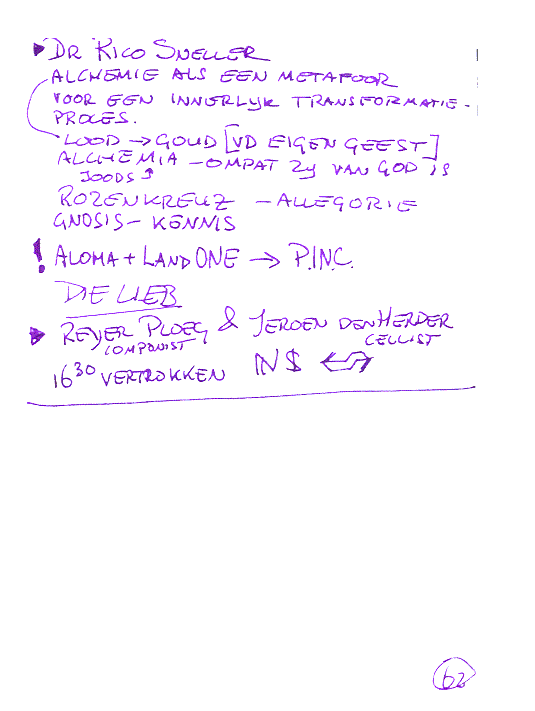 ▶ DR RICO SNELLER
ALCHEMIE ALS EEN METAFOOR
VOOR EEN INNERLYK TRANSFORMATIE-
PROCES.
LOOD → GOUD [VD EIGEN GEEST]
ALCHEMIA - OMPAT ZY VAN GOD IS
JOODS ↑
ROZENKREUZ - ALLEGORIE
GNOSIS - KENNIS
! ALOMA + LAND ONE → P.INC.
DIE LIEB
▶ REYER PLOEG & JEROEN DEN HERDER
COMPONIST CELLIST
16³⁰ VERTROKKEN NS
62